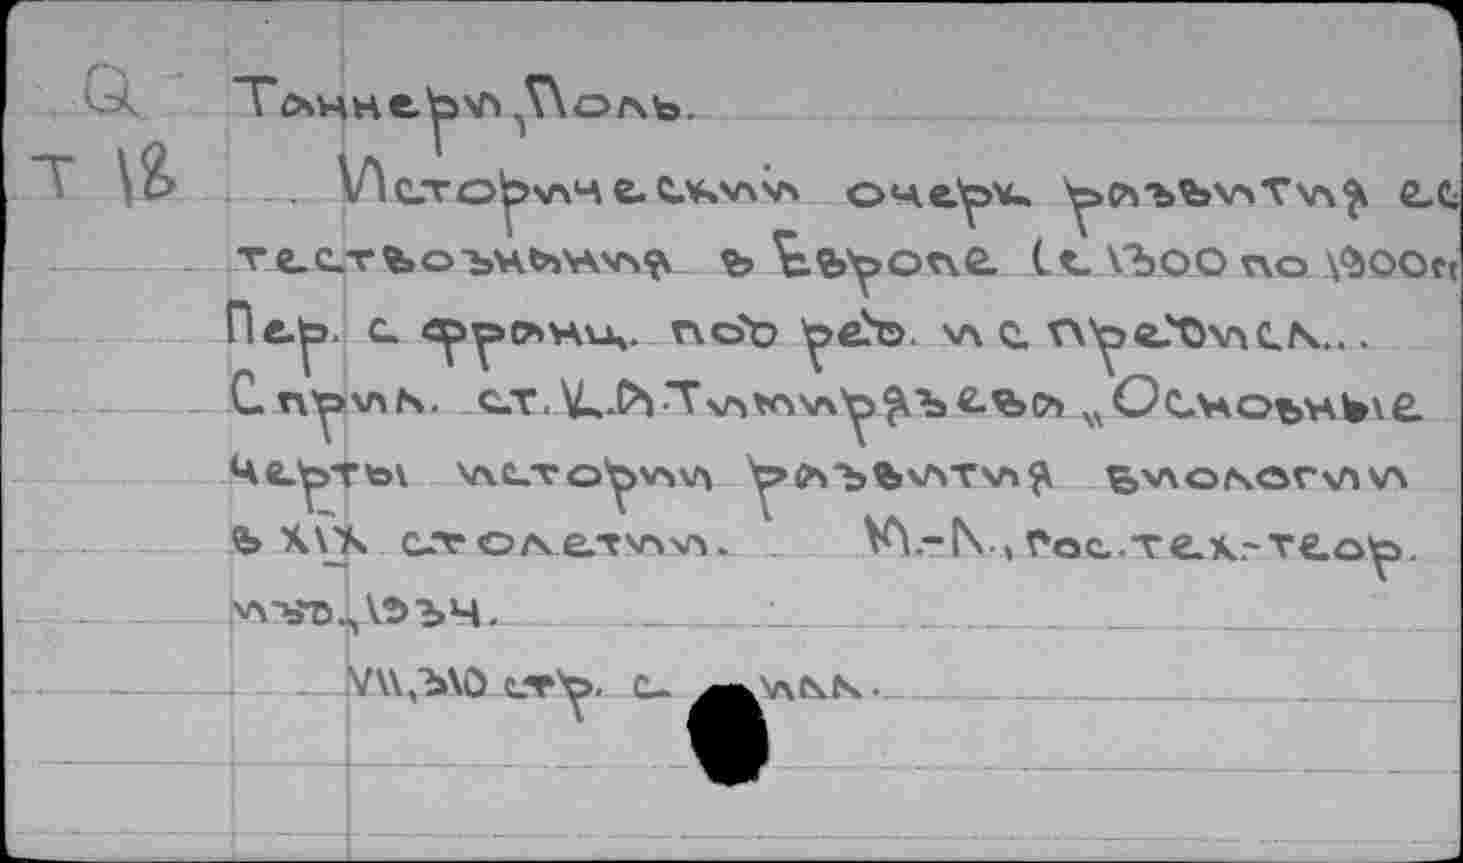 Q Таннери, Поль.
T 18 Исторический очерк развития ес
тествознания в Европе (с 1300 по 1900гг
Пер. с франц. под ред. и с предисл...
С прил. ст. К.А.Тимирязева „Основные
черты истории развития биологии
в XIX столетии. М.-Л., Гос.тех.-теор.
изд., 1934.
VII,310 стр. с илл.